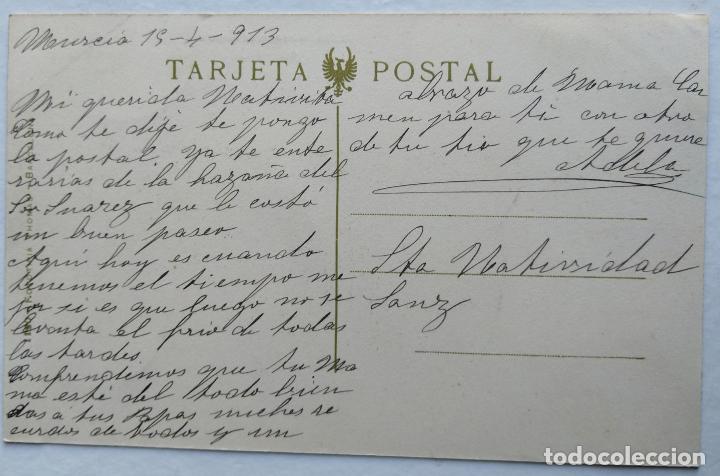 Murcia 15-4-913
TARJETA POSTAL
Mi querida Nativida
Como te dije te pongo
la postal. Ya te ente
rarias de la hazaña del
Sor Suarez que le costó
un buen paseo
Aqui hoy es cuando
tenemos el tiempo me
jor si es que luego no se
levanta el frio de todas
las tardes.
Comprendemos que tu Ma
ma esté del todo bien
das a tus Papas muchos re
cuerdos de todos y un
abrazo de Mama Car
men para ti con otro
de tu tio que te quiere
Adela
Sta Natividad
Sanz
todocoleccion